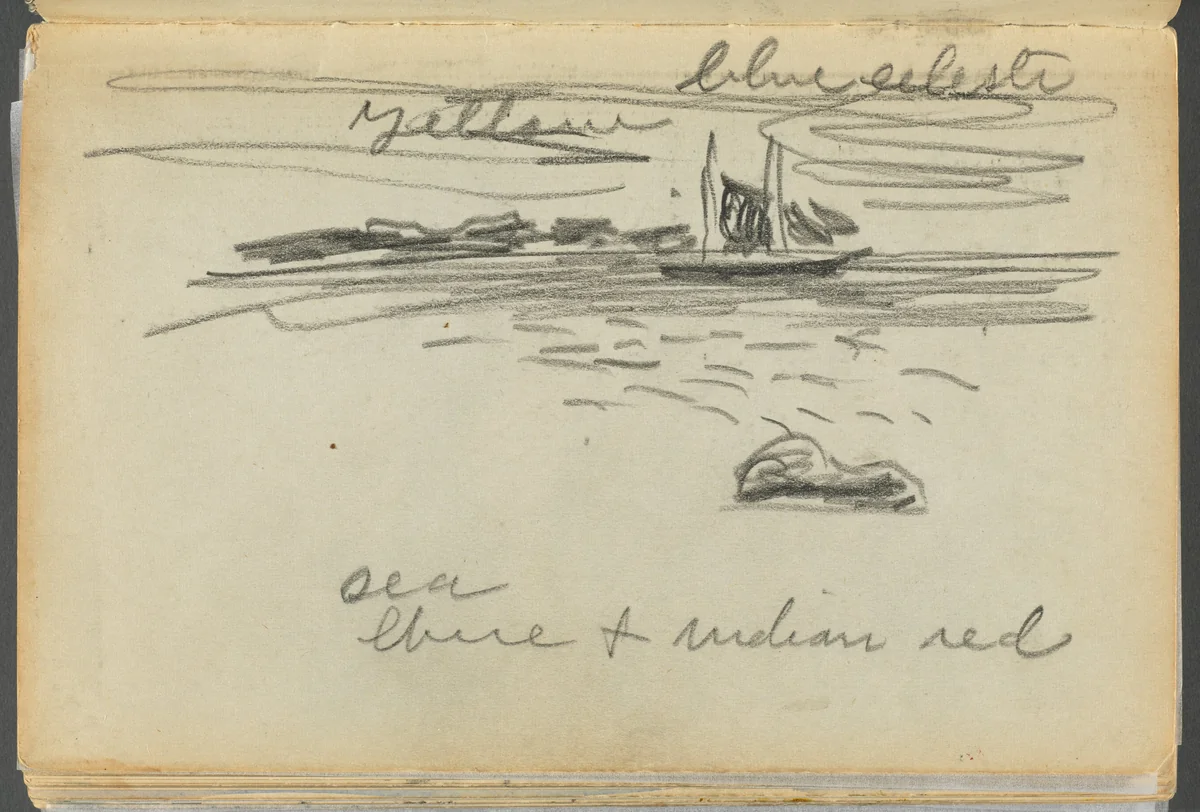 blue celeste
yellow
sea
blue & indian red